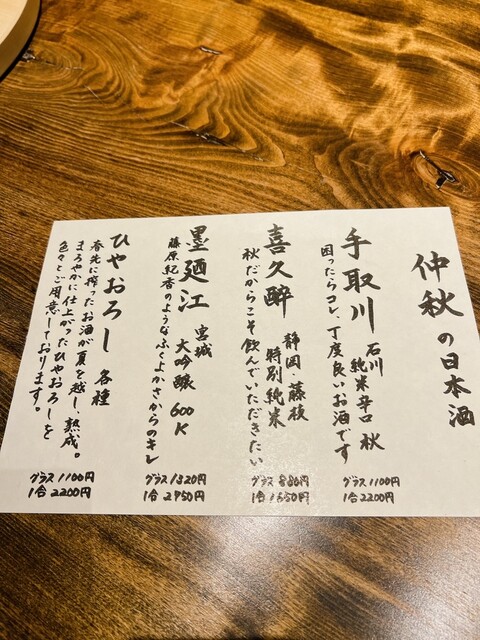 仲秋の日本酒
手取川 石川 純米辛口 秋
困ったらコレ、丁度良いお酒です
グラス 1100円
1合 2200円
喜久醉 静岡・藤枝 特別純米
秋だからこそ飲んでいただきたい
グラス 880円
1合 1650円
墨廼江 宮城 大吟醸 600K
藤原紀香のようなふくよかさからのキレ
グラス 1320円
1合 2950円
ひやおろし 各種
春先に搾ったお酒が夏を越し、熟成。
まろやかに仕上がったひやおろしを
色々とご用意しております。
グラス 1100円
1合 2200円